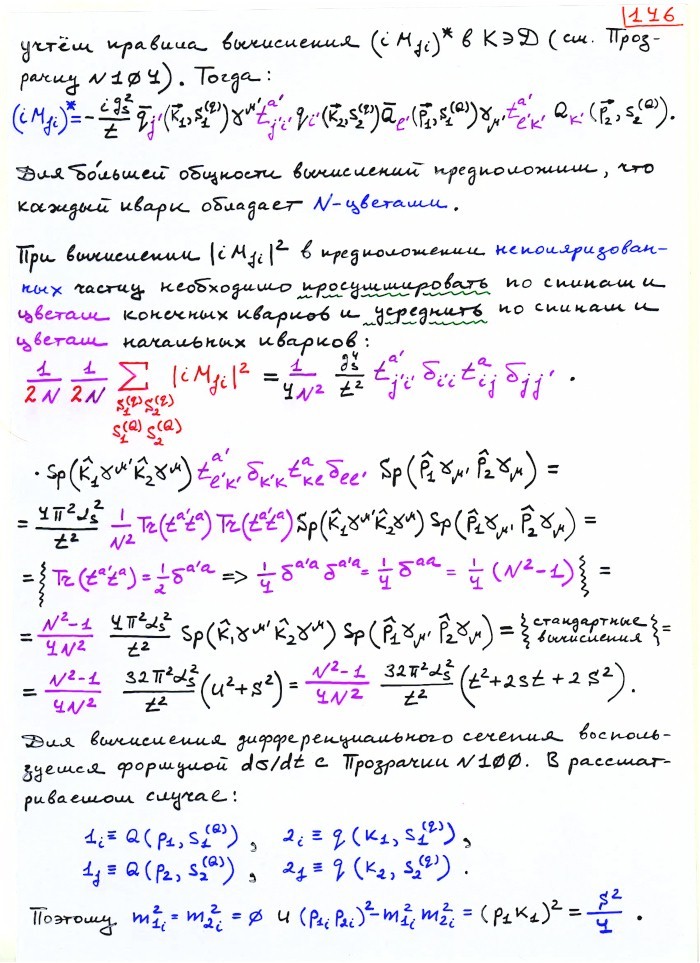 146
учтём правила вычисления (i M_fi)* в КЭД (см. Проз-
рачку N 1Ø4). Тогда:
(i M_fi)* = - i g_s²/t q̄_j'(k⃗₁, s₁^(q)) γ^μ' t^a'_j'i' q_i'(k⃗₂, s₂^(q)) Q̄_ℓ'(p⃗₁, s₁^(Q)) γ_μ' t^a'_ℓ'k' Q_k'(p⃗₂, s₂^(Q)).
Для бо́льшей общности вычислений предположим, что
каждый кварк обладает N-цветами.
При вычислении |i M_fi|² в предположении неполяризован-
ных частиц необходимо просуммировать по спинам и
цветам конечных кварков и усреднить по спинам и
цветам начальных кварков:
1/2N 1/2N Σ_{s₁^(q) s₂^(q) s₁^(Q) s₂^(Q)} |i M_fi|² = 1/4N² g_s⁴/t² t^a'_j'i' δ_ii t^a_ij δ_jj' ·
· Sp(k̂₁γ^μ' k̂₂γ^μ) t^a'_ℓ'k' δ_k'k t^a_kℓ δ_ℓℓ' Sp(p̂₁γ_μ' p̂₂γ_μ) =
= 4π²α_s²/t² 1/N² Tr(t^a' t^a) Tr(t^a' t^a) Sp(k̂₁γ^μ' k̂₂γ^μ) Sp(p̂₁γ_μ' p̂₂γ_μ) =
= { Tr(t^a' t^a) = 1/2 δ^a'a => 1/4 δ^a'a δ^a'a = 1/4 δ^aa = 1/4 (N²-1) } =
= N²-1/4N² 4π²α_s²/t² Sp(k̂₁γ^μ' k̂₂γ^μ) Sp(p̂₁γ_μ' p̂₂γ_μ) = { стандартные вычисления } =
= N²-1/4N² 32π²α_s²/t² (u²+s²) = N²-1/4N² 32π²α_s²/t² (t²+2st+2s²).
Для вычисления дифференциального сечения восполь-
зуемся формулой dσ/dt с Прозрачки N 1ØØ. В рассмат-
риваемом случае:
1_i ≡ Q(p₁, s₁^(Q)), 2_i ≡ q(k₁, s₁^(q)),
1_f ≡ Q(p₂, s₂^(Q)), 2_f ≡ q(k₂, s₂^(q)).
Поэтому m²_1i = m²_2i = Ø и (p_1i p_2i)² - m²_1i m²_2i = (p₁k₁)² = s²/4.